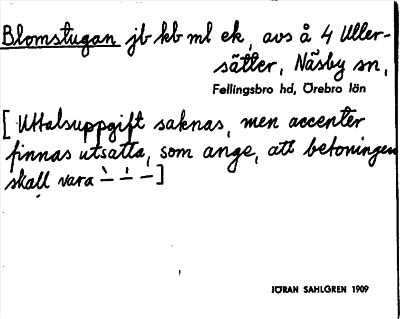 Blomstugan jb kb ml ek, avs å 4 Uller-
sätter, Näsby sn,
Fellingsbro hd, Örebro län
[Uttalsuppgift saknas, men accenter
finnas utsatta, som ange, att betoningen
skall vara –̀ –́ –]
JÖRAN SAHLGREN 1909